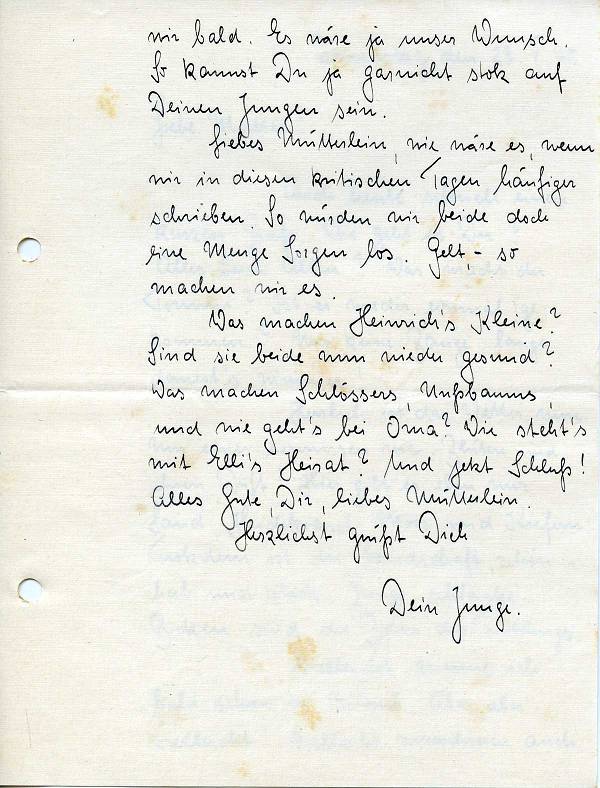 wir bald. Es wäre ja unser Wunsch.
So kannst Du ja garnicht stolz auf
Deinen Jungen sein.
Liebes Mütterlein, wie wäre es, wenn
wir in diesen kritischen Tagen häufiger
schrieben. So würden wir beide doch
eine Menge Sorgen los. Gelt - so
machen wir es.
Was machen Heinrich's Kleine?
Sind sie beide nun wieder gesund?
Was machen Schlössers, Nußbaums,
und wie geht's bei Oma? Wie steht's
mit Elli's Heirat? Und jetzt Schluß!
Alles Gute, Dir, liebes Mütterlein.
Herzlichst grüßt Dich
Dein Junge.